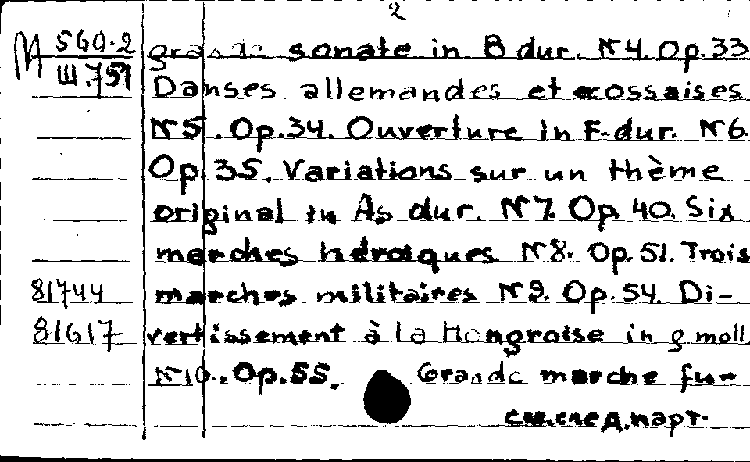 2
М 560.2
Ш.751
grande sonate in B dur. N 4. Op. 33
Danses allemandes et ecossaises
N 5. Op. 34. Ouverture in F-dur. N 6
Op. 35. Variations sur un thème
original in As dur. N 7. Op. 40. Six
marches héroiques N 8. Op. 51. Trois
81744 marches militaires N 9. Op. 54. Di-
81617 vertissement à la Hongroise in g moll
N 10. Op. 55. Grande marche fu-
см. след. карт.